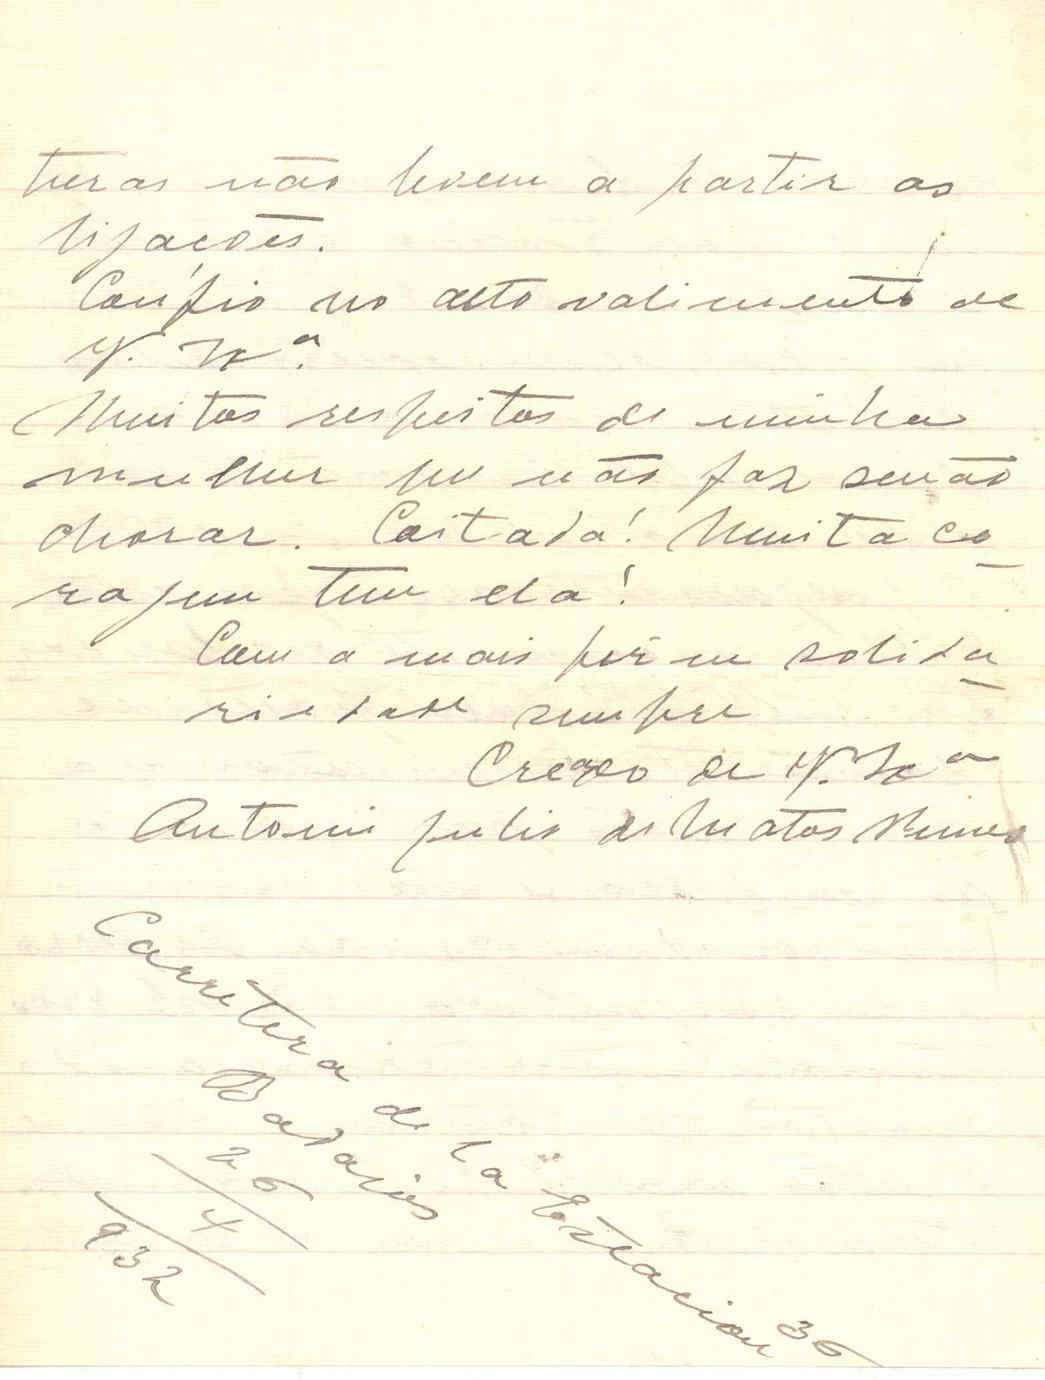 turas não levem a partir as
ligacões.
Confio no alto valimento de
V. Exª.
Muitos respeitos de minha
mulher que não faz senão
chorar. Coitada! Muita co-
ragem tem ela!
Com a mais firme solida-
riedade sempre
Creado de V. Exª
Antonio Julio de Matos
Carretera de la Estacion 36
Badajos
26
4
932